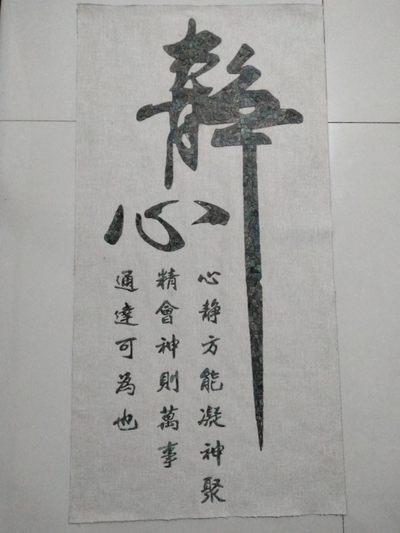 靜心
心静方能凝神聚
精會神則萬事
通達可為也